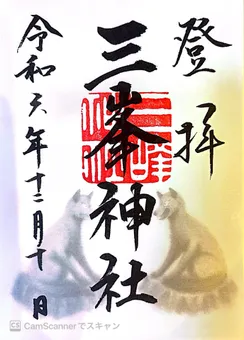 登拝
三峯神社
令和六年十二月十日
CS CamScannerでスキャン